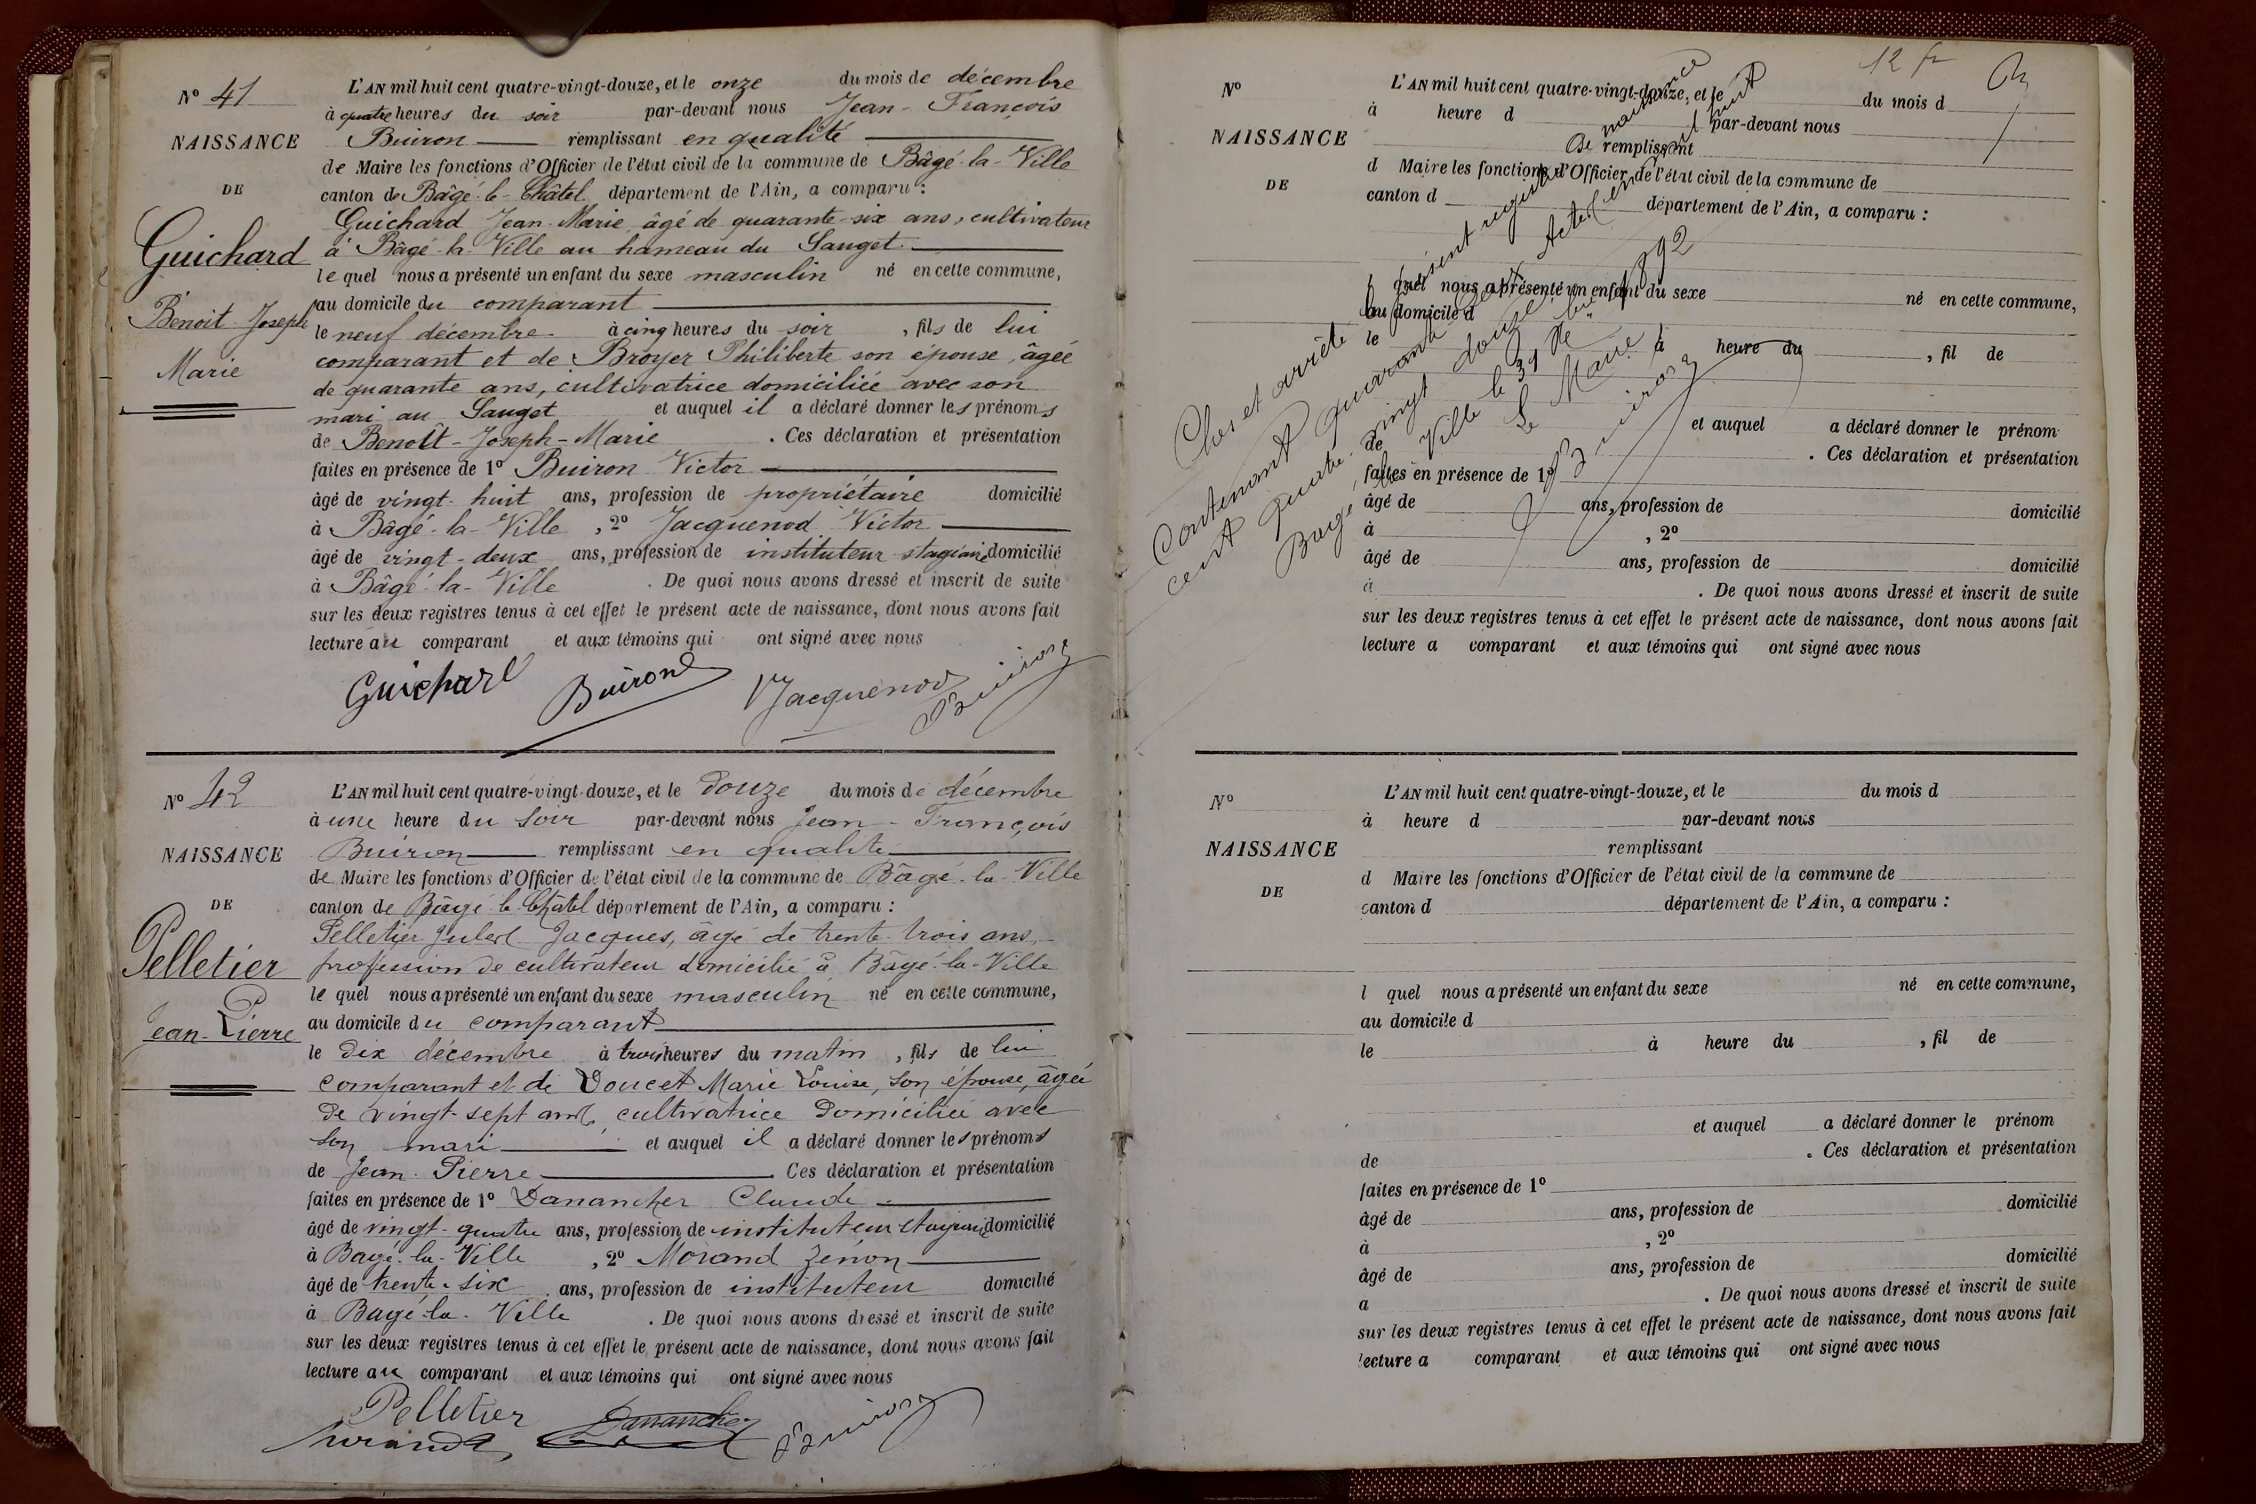 N° 41
NAISSANCE
DE
Guichard
Benoit Joseph
Marie
L'AN mil huit cent quatre-vingt-douze, et le onze du mois de décembre
à quatre heures du soir par-devant nous Jean-François
Buiron remplissant en qualité
de Maire les fonctions d'Officier de l'état civil de la commune de Bâgé-la-Ville
canton de Bâgé-le-Châtel département de l'Ain, a comparu :
Guichard Jean-Marie âgé de quarante-six ans, cultivateur
à Bâgé-la-Ville au hameau du Sauget
lequel nous a présenté un enfant du sexe masculin né en cette commune,
au domicile du comparant
le neuf décembre à cinq heures du soir, fils de lui
comparant et de Broyer Philiberte son épouse, âgée
de quarante ans, cultivatrice domiciliée avec son
mari au Sauget et auquel il a déclaré donner les prénoms
de Benoît-Joseph-Marie. Ces déclaration et présentation
faites en présence de 1° Buiron Victor
âgé de vingt-huit ans, profession de propriétaire domicilié
à Bâgé-la-Ville, 2° Jacquenod Victor
âgé de vingt-deux ans, profession de instituteur stagiaire domicilié
à Bâgé-la-Ville. De quoi nous avons dressé et inscrit de suite
sur les deux registres tenus à cet effet le présent acte de naissance, dont nous avons fait
lecture au comparant et aux témoins qui ont signé avec nous
Guichard Buiron VJacquenod Buiron
N° 42
NAISSANCE
DE
Pelletier
Jean-Pierre
L'AN mil huit cent quatre-vingt-douze, et le douze du mois de décembre
à une heure du soir par-devant nous Jean-François
Buiron remplissant en qualité
de Maire les fonctions d'Officier de l'état civil de la commune de Bâgé-la-Ville
canton de Bâgé-le-Châtel département de l'Ain, a comparu :
Pelletier Jacques, âgé de trente-trois ans,
profession de cultivateur domicilié à Bâgé-la-Ville
lequel nous a présenté un enfant du sexe masculin né en cette commune,
au domicile du comparant
le dix décembre à trois heures du matin, fils de lui
comparant et de Doucet Marie Louise, son épouse, âgée
de vingt-sept ans, cultivatrice domiciliée avec
son mari et auquel il a déclaré donner les prénoms
de Jean-Pierre. Ces déclaration et présentation
faites en présence de 1° Danancher Claude
âgé de vingt-quatre ans, profession de instituteur stagiaire domicilié
à Bagé-la-Ville, 2° Morand Zénon
âgé de trente-six ans, profession de instituteur domicilié
à Bagé-la-Ville. De quoi nous avons dressé et inscrit de suite
sur les deux registres tenus à cet effet le présent acte de naissance, dont nous avons fait
lecture au comparant et aux témoins qui ont signé avec nous
Pelletier
Morand Danancher Buiron
12 fr
N°
NAISSANCE
DE
L'AN mil huit cent quatre-vingt-douze, et le du mois d
à heure d par-devant nous
remplissant
d Maire les fonctions d'Officier de l'état civil de la commune de
canton d département de l'Ain, a comparu :
l quel nous a présenté un enfant du sexe né en cette commune,
au domicile d
le à heure du , fil de
et auquel a déclaré donner le prénom
de . Ces déclaration et présentation
faites en présence de 1°
âgé de ans, profession de domicilié
à , 2°
âgé de ans, profession de domicilié
à . De quoi nous avons dressé et inscrit de suite
sur les deux registres tenus à cet effet le présent acte de naissance, dont nous avons fait
lecture a comparant et aux témoins qui ont signé avec nous
Clos et arrêté le présent registre de naissance
Contenant quarante-deux Actes en mil huit
cent quatre-vingt-douze
Bâgé-la-Ville le 31 Xbre 1892
Le Maire
Buiron
N°
NAISSANCE
DE
L'AN mil huit cent quatre-vingt-douze, et le du mois d
à heure d par-devant nous
remplissant
d Maire les fonctions d'Officier de l'état civil de la commune de
canton d département de l'Ain, a comparu :
l quel nous a présenté un enfant du sexe né en cette commune,
au domicile d
le à heure du , fil de
et auquel a déclaré donner le prénom
de . Ces déclaration et présentation
faites en présence de 1°
âgé de ans, profession de domicilié
à , 2°
âgé de ans, profession de domicilié
a . De quoi nous avons dressé et inscrit de suite
sur les deux registres tenus à cet effet le présent acte de naissance, dont nous avons fait
lecture a comparant et aux témoins qui ont signé avec nous